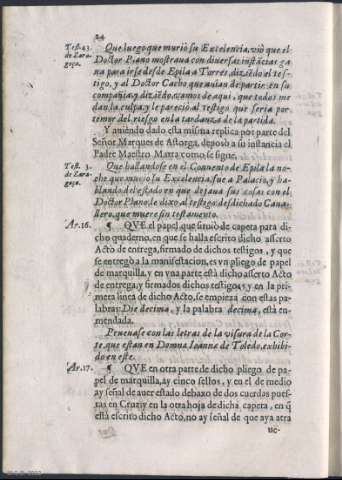 24
Test. 23.
de Zara-
goça.
Que luego que murió su Excelencia, vió que el
Doctor Plano mostraua con diversas instācias ga
na para irse desde Epila a Torres, diziēdo al tes-
tigo, y al Doctor Cacho que auian de partir en su
compañia, y diziēdo, vamos de aqui, que todos me
dan la culpa, y le pareciò al testigo que seria por
temor del riesgo en la tardança de la partida.
Y auiendo dado esta misma replica por parte del
Señor Marques de Astorga, deposò a su instancia el
Padre Maestro Marta como se sigue.
Test. 3.
de Zara-
goça.
Que hallandose en el Conuento de Epila la no-
che que murio su Excelencia, fue a Palacio, y ha-
blando del estado en que dexaua sus cosas con el
Doctor Plano, le dixo al testigo: desdichado Caua-
llero, que muere sin testamento.
Ar. 16.
¶ QVE el papel que siruiò de capera para di-
cho quaderno, en que se halla escrito dicho asserto
Acto de entrega, firmado de dichos testigos, y que
se entregò a la manifestacion, es vn pliego de papel
de marquilla, y en vna parte està dicho asserto Acto
de entrega, y firmados dichos testigos, y en la pri-
mera linea de dicho Acto, se empieza con estas pa-
labras: Die decima, y la palabra decima, està en-
mendada.
Prueuase con las letras de la visura de la Cor-
te, que estan en Domna Ioanne de Toledo, exhibi-
do en este.
Ar. 17.
¶ QVE en otra parte de dicho pliego de pa-
pel de marquilla, ay cinco sellos, y en el de medio
ay señal de auer estado debaxo de dos cuerdas pues-
tas en Cruz, y en la otra hoja de dicha capera, en q̄
està escrito dicho Acto, no ay señal de que aya atra
ue-